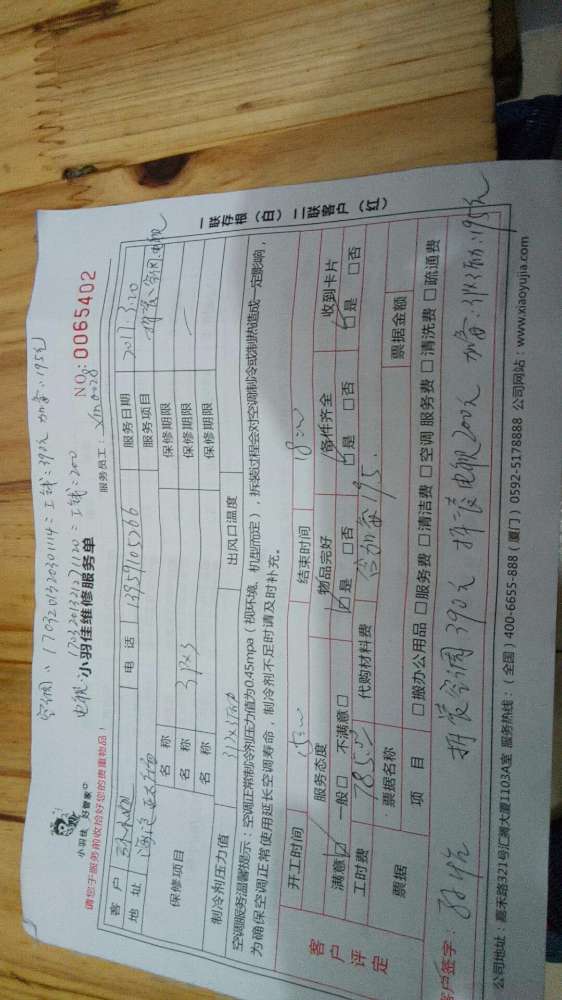 空调: 17032013203001114: 工钱: 390元 加氟: 195元
电视: 1703201321271120: 工钱: 200
小羽佳 好管家
小羽佳维修服务单
NO: 0065402
请您于服务前收拾好您的贵重物品!
服务员工: xm0428
客户 电话 13959105266 服务日期 2017.3.20
地址 服务项目 拆装空调.电视
保修项目 名称 保修期限
名称 3P×3 保修期限
名称 保修期限
制冷剂压力值 出风口温度
空调服务温馨提示:空调正常制冷剂压力值为0.45mpa(视环境、机型而定),拆装过程会对空调制冷或制热造成一定影响,
为确保空调正常使用延长空调寿命,制冷剂不足时请及时补充。
客户评定
开工时间 结束时间
服务态度 物品完好 备件齐全 收到卡片
满意☑ 一般□ 不满意□ ☑是 □否 ☑是 □否 ☑是 □否
工时费 785.00 代购材料费 含加氟195.
票据 票据名称 票据金额
项目 □搬办公用品 □服务费 □清洁费 □空调服务费 □清洗费 □疏通费
客户签字: 拆装空调390元 拆装电视200元 加氟: 195元
公司地址:嘉禾路321号汇腾大厦1103A室 服务热线:(全国)400-6655-688(厦门)0592-5178888 公司网站:www.xiaoyujia.com
一联存根(白)二联客户(红)